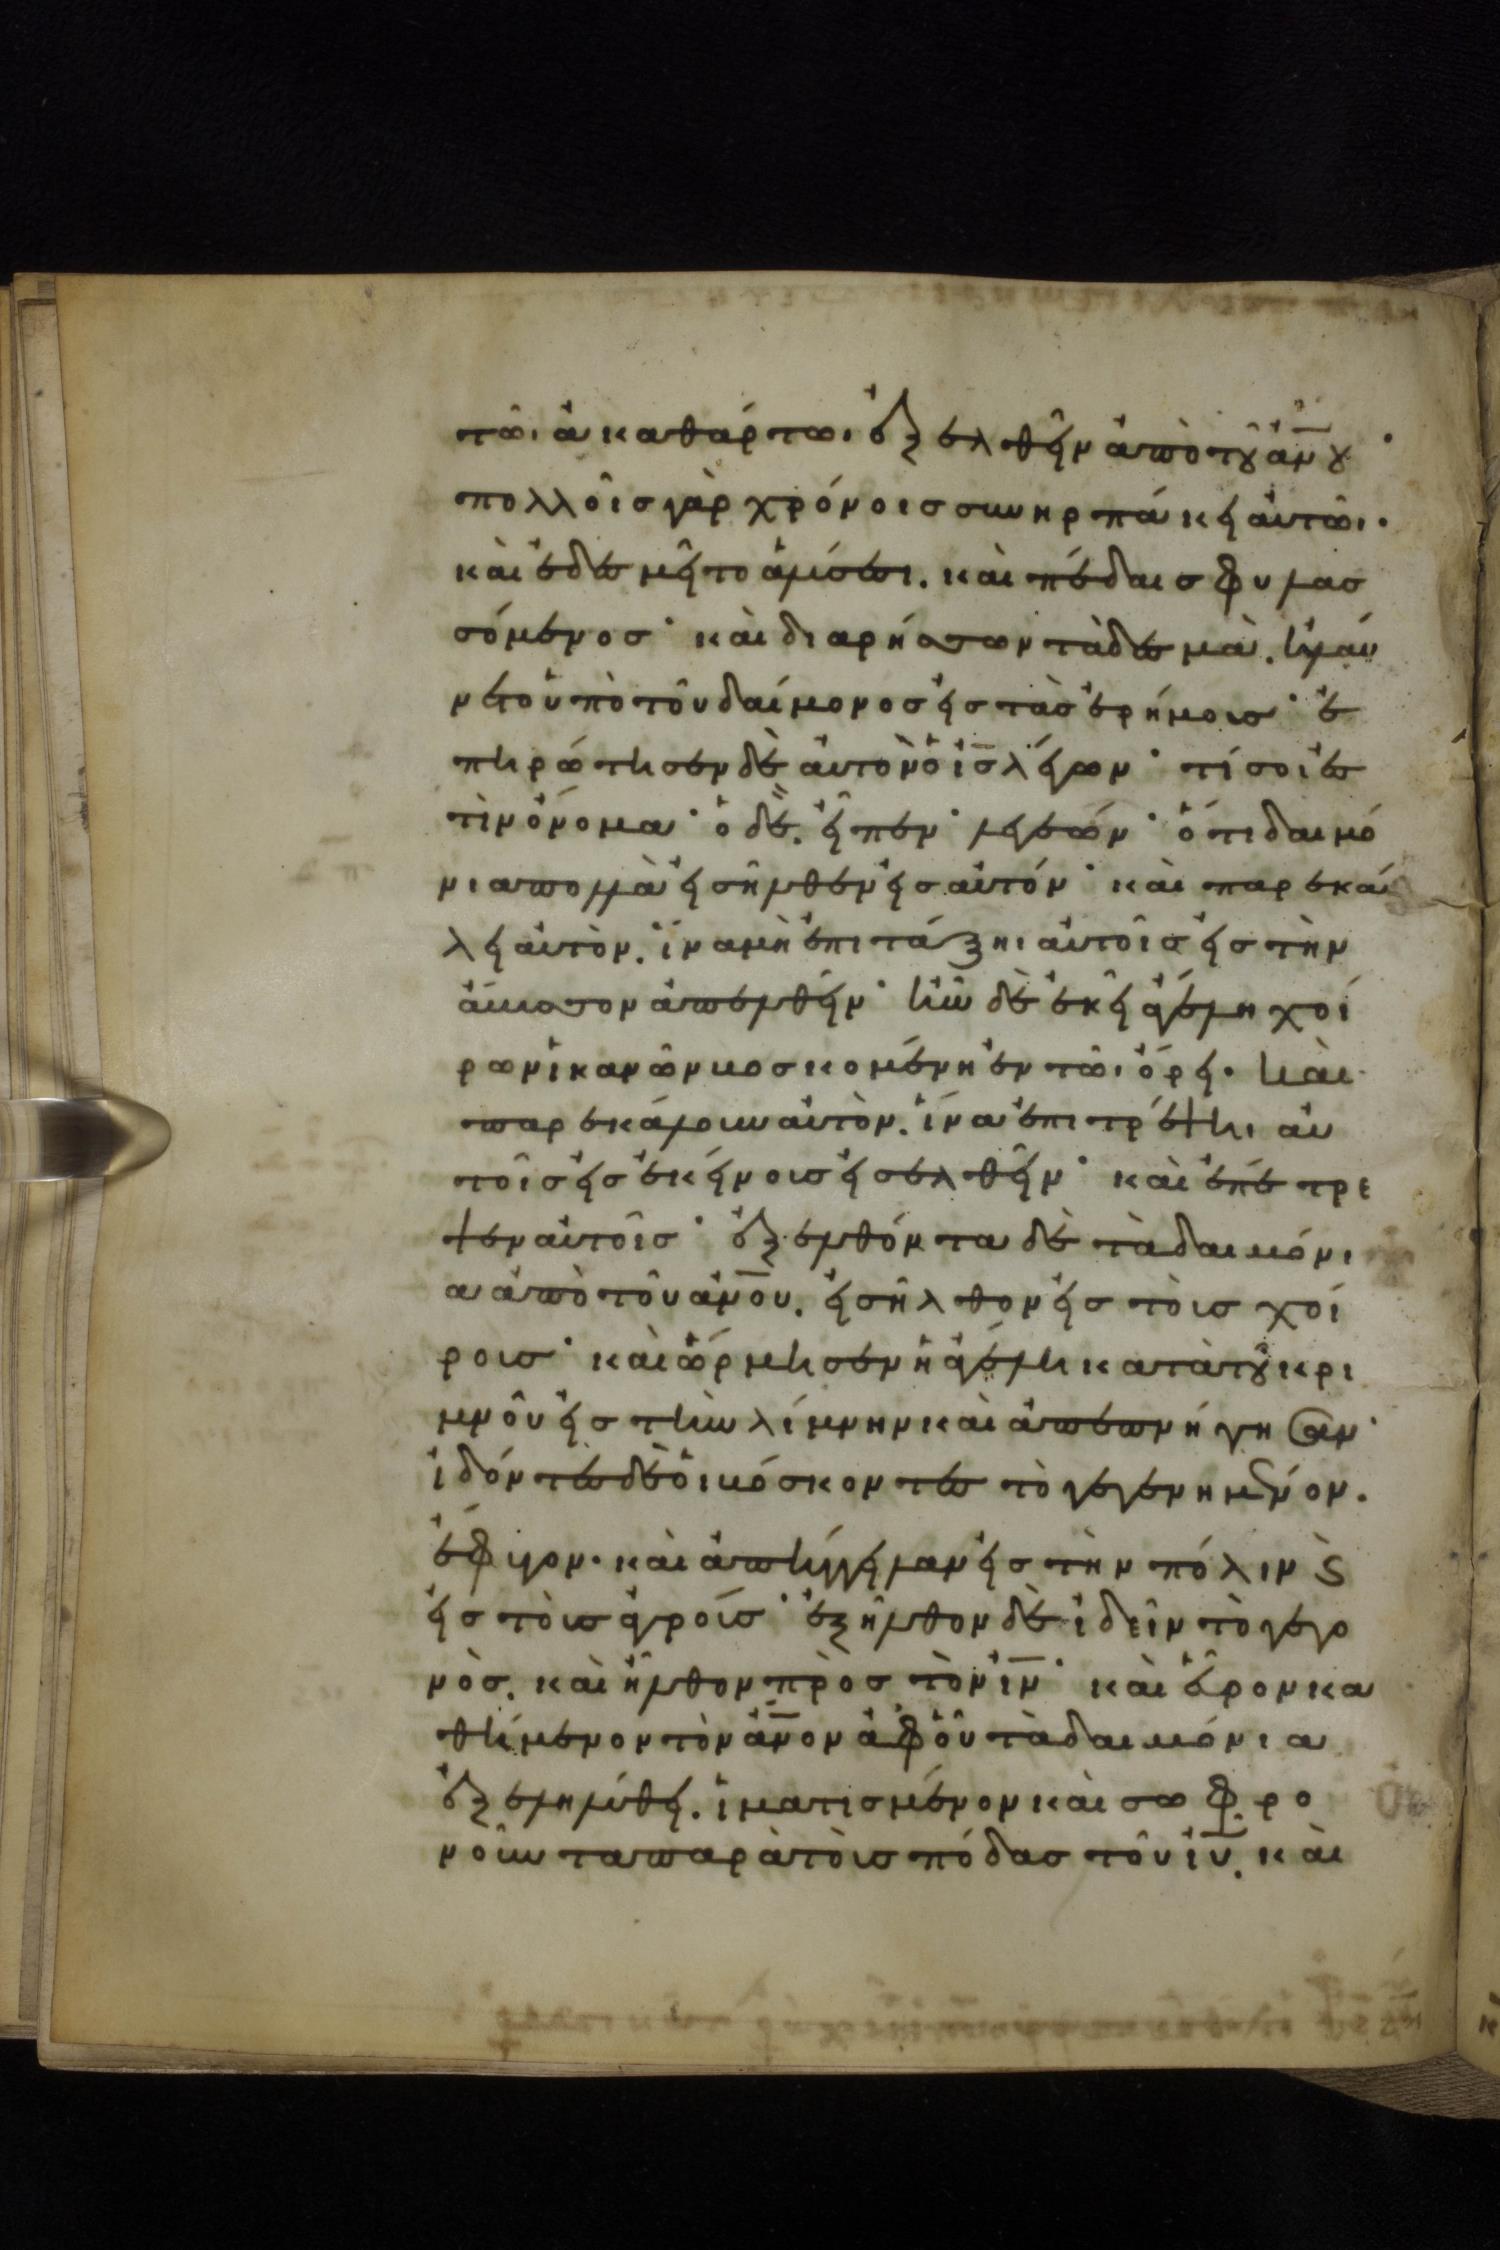 τῶι ἀκαθάρτωι ἐξελθεῖν ἀπὸ τοῦ ἀν̅ου·
πολλοῖς γὰρ χρόνοις συνηρπάκει αὐτῶι·
καὶ ἐδεσμεῖτο ἁλύσεσι. καὶ πέδαις φυλασ
σόμενος· καὶ διαρήσσων τὰ δεσμὰ. ἠλαύ
νετο ὑπὸ τοῦ δαίμονος εἰς τὰς ἐρήμους· ἐ
πηρώτησεν δὲ αὐτὸν ὁ ι̅ς̅ λέγων· τί σοι ἐσ
τὶν ὄνομα· ὁ δὲ. εἶπεν· λεγεών· ὅτι δαιμό
νια πολλὰ εἰσῆλθεν εἰς αὐτόν· καὶ παρεκά
λει αὐτὸν. ἵνα μὴ ἐπιτάξηι αὐτοῖς εἰς τὴν
ἄβυσσον ἀπελθεῖν· ἦν δὲ ἐκεῖ ἀγέλη χοί
ρων ἱκανῶν βοσκομένη ἐν τῶι ὄρει· καὶ
παρεκάλουν αὐτὸν. ἵνα ἐπιτρέψηι αὐ
τοῖς εἰς ἐκείνους εἰσελθεῖν· καὶ ἐπέτρε
ψεν αὐτοῖς· ἐξελθόντα δὲ τὰ δαιμόνι
α ἀπὸ τοῦ ἀν̅ου. εἰσῆλθον εἰς τοὺς χοί
ρους· καὶ ὥρμησεν ἡ ἀγέλη κατὰ τοῦ κρι
μνοῦ εἰς τὴν λίμνην καὶ ἀπεπνήγησαν·
ἰδόντες δὲ ὁι βόσκοντες τὸ γεγενημένον.
ἔφυγον· καὶ ἀπήγγειλαν εἰς τὴν πόλιν ϗ
εἰς τοὺς ἀγρούς· ἐξῆλθον δὲ ἰδεῖν τὸ γεγο
νὸς. καὶ ἦλθον πρὸς τὸν ι̅ν̅· καὶ εὗρον κα
θήμενον τὸν ἀν̅ον ἀφ' οὗ τὰ δαιμόνια
ἐξεληλύθει. ἱματισμένον καὶ σωφρο
νοῦντα παρὰ τοὺς πόδας τοῦ ι̅υ̅. καὶ